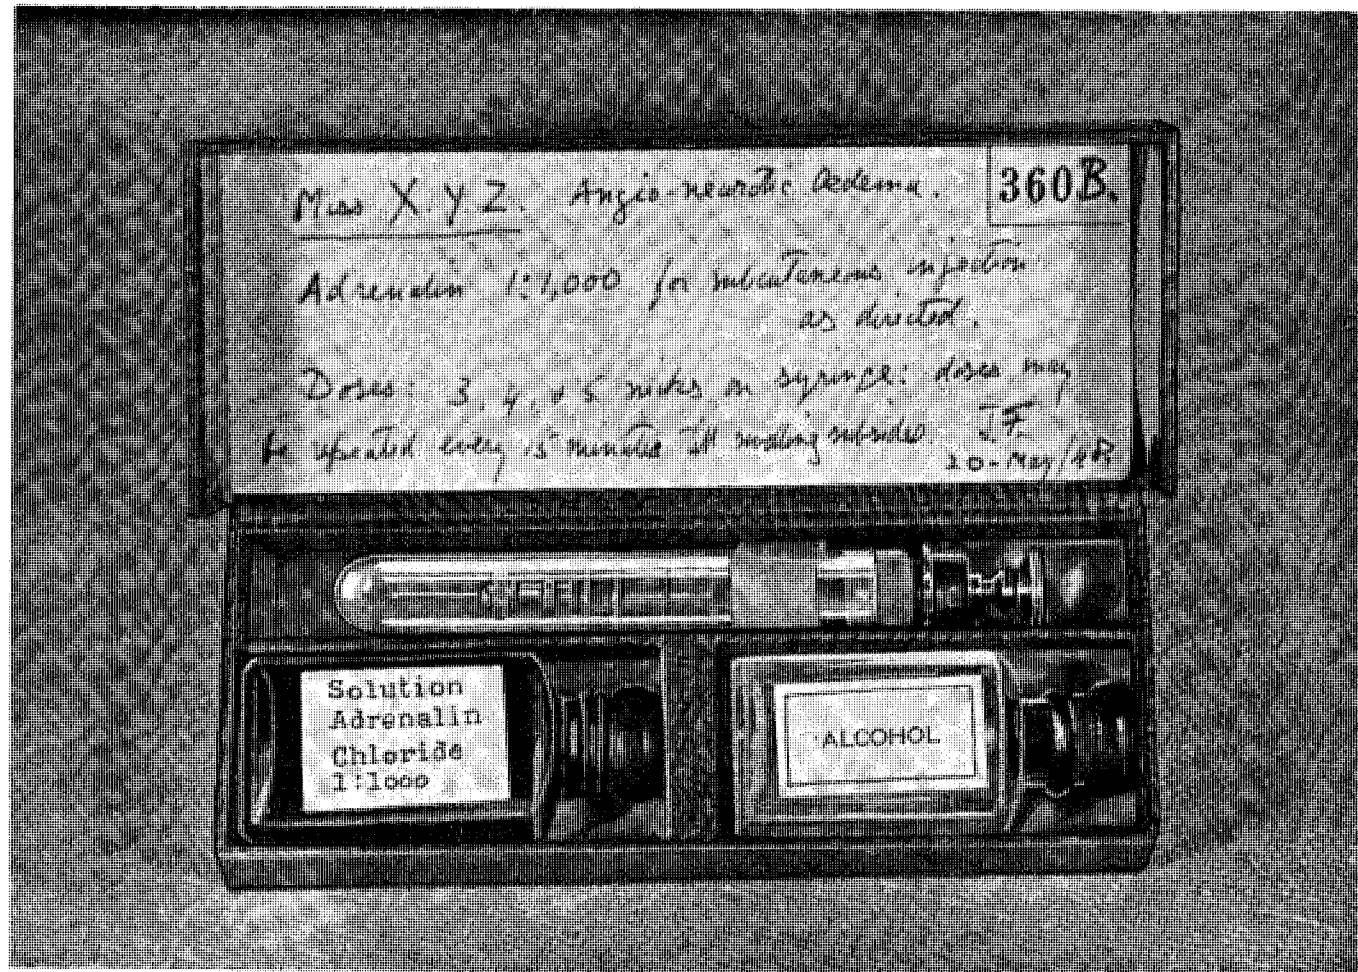 Miss X.Y.Z. Angio-neurotic Oedema. 360B.
Adrenalin 1:1,000 for subcutaneous injection
as directed.
Doses: 3, 4, & 5 nicks on syringe: doses may
be repeated every 15 minutes till swelling subsides. J.F.
20-May/48
Solution
Adrenalin
Chloride
1:1000
ALCOHOL